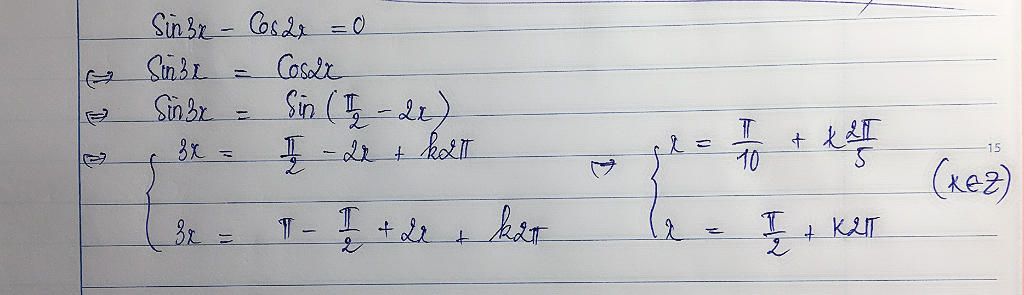 Sin3x - Cos2x = 0
⇔ Sin3x = Cos2x
⇔ Sin3x = Sin(π/2 - 2x)
⇔ { 3x = π/2 - 2x + k2π
3x = π - π/2 + 2x + k2π
⇔ { x = π/10 + k2π/5
x = π/2 + k2π
(k∈Z)
15